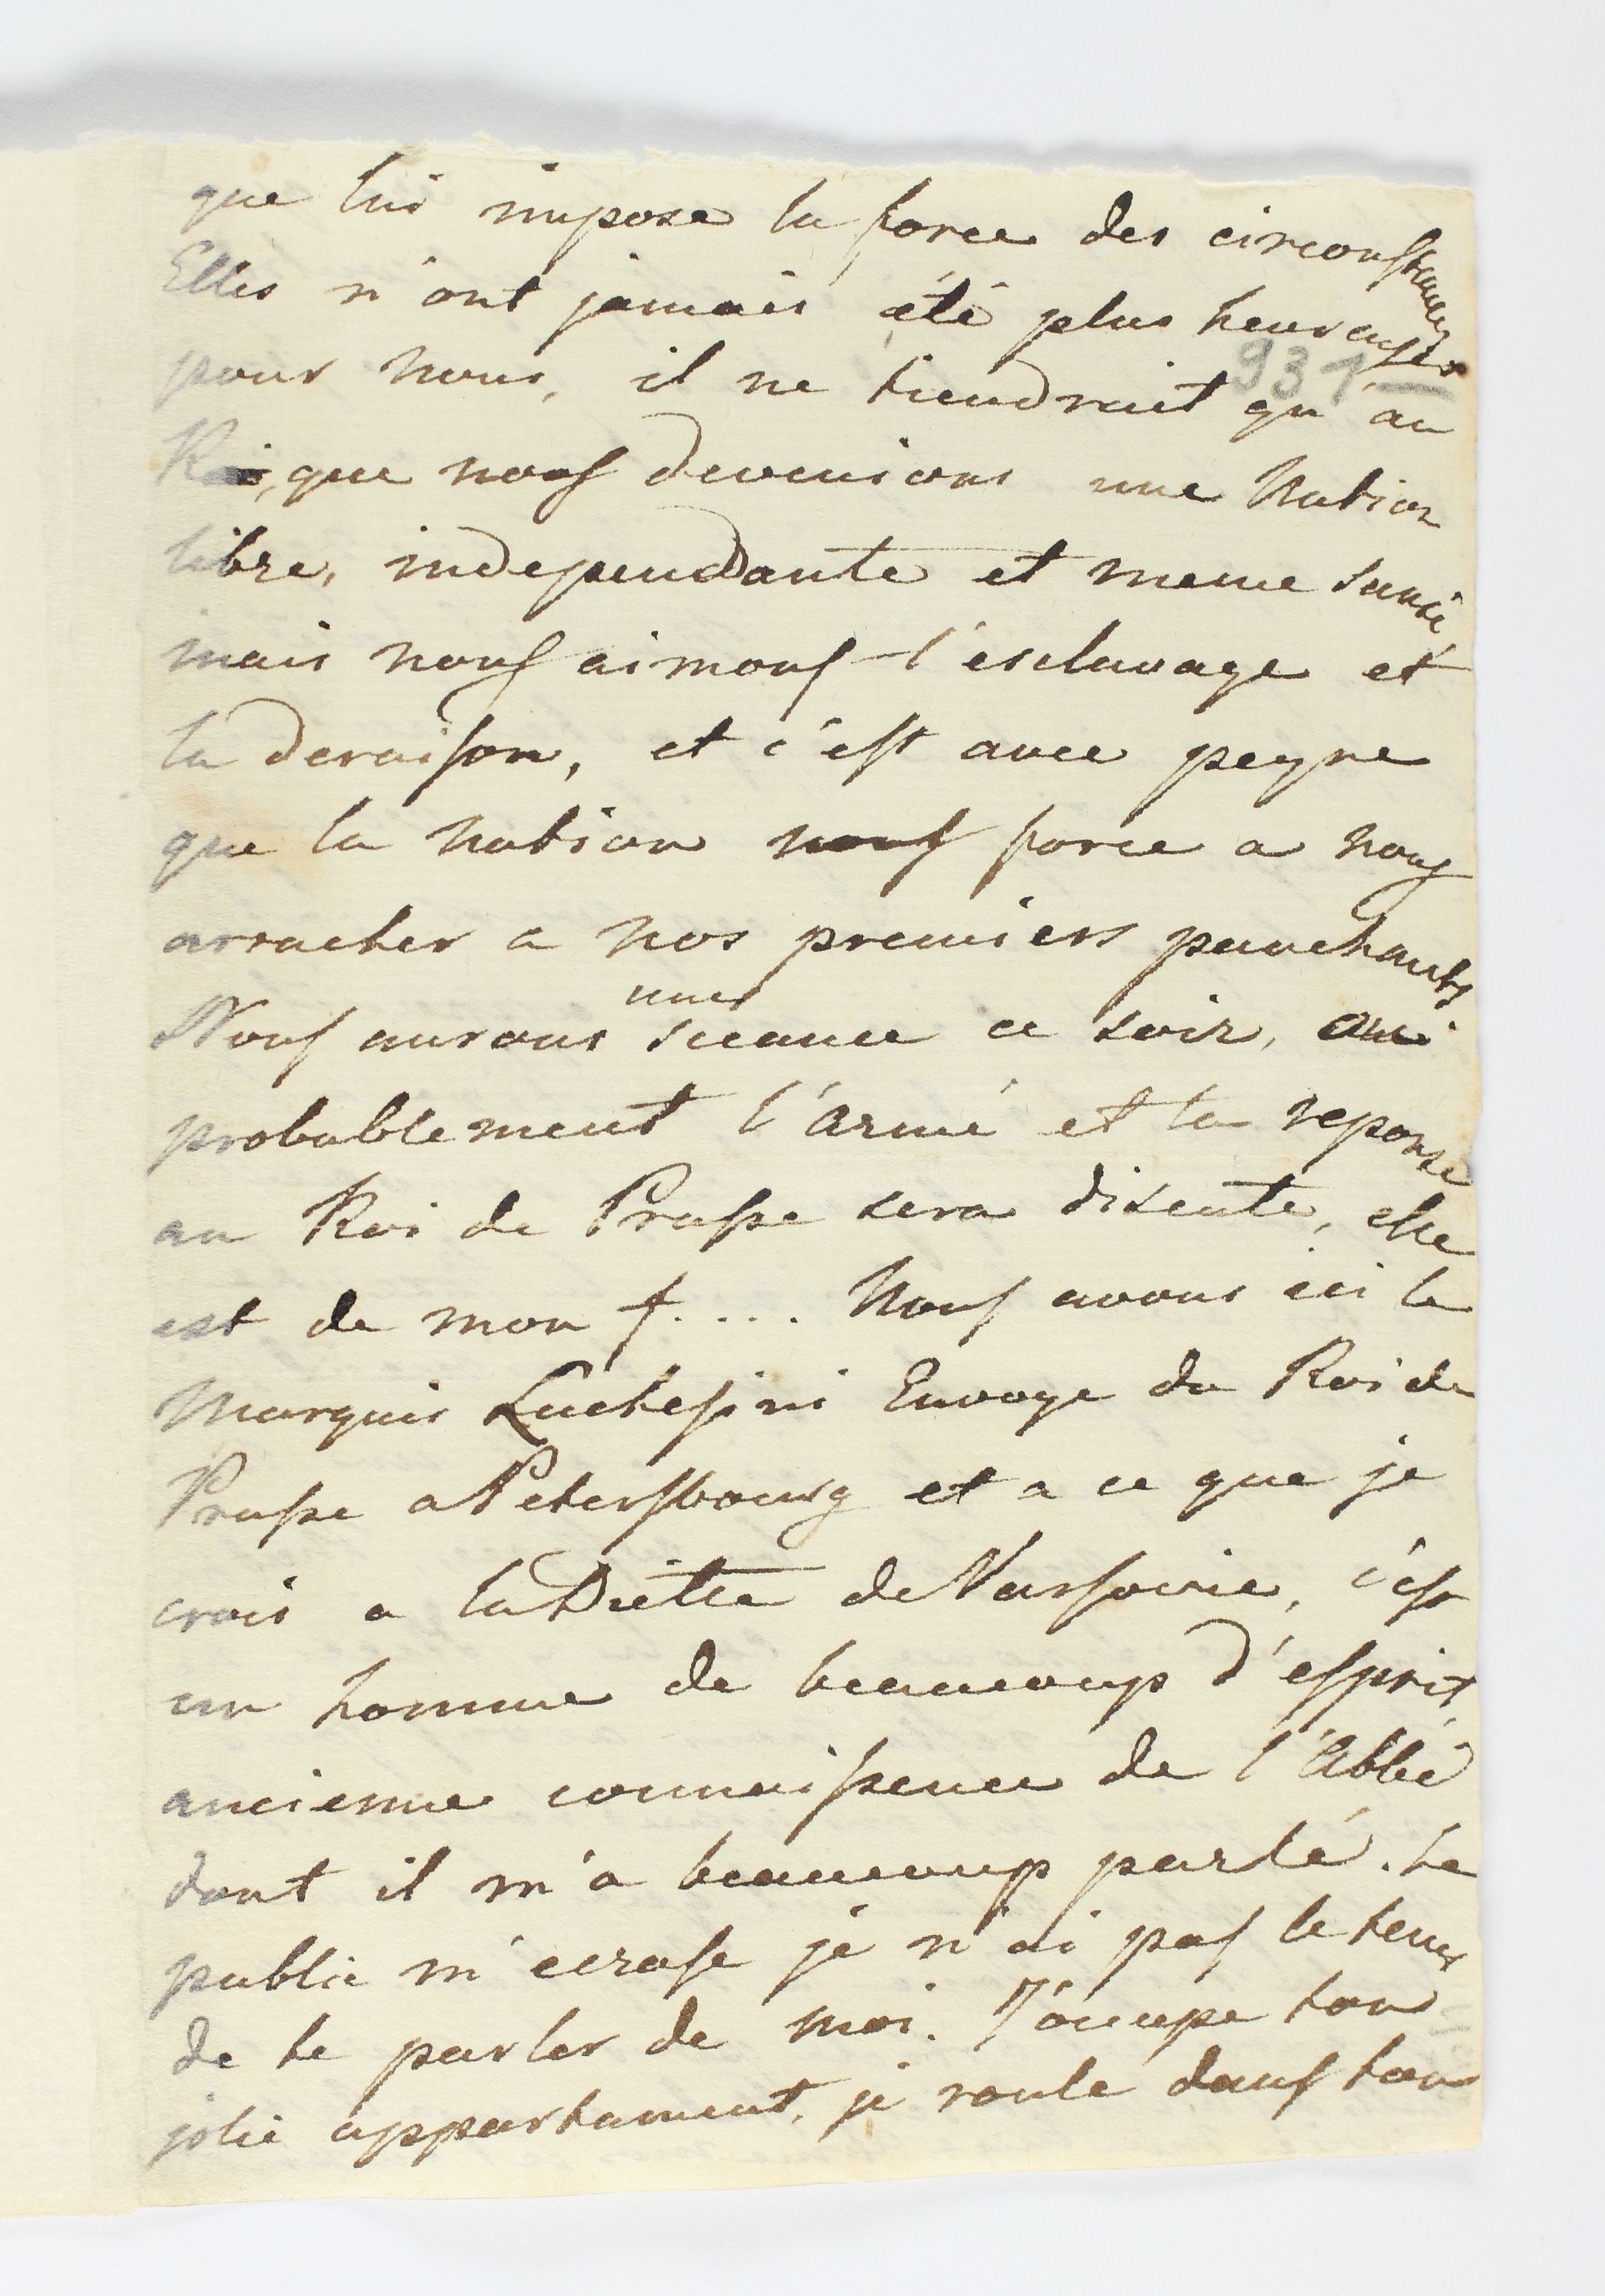 que lui impose la force des circonstances
Elles n'ont jamais été plus heureuses
931
pour nous, il ne tiendrait qu'au
Roi, que nous devenions une Nation
libre, independante et meme
mais nous aimons l'esclavage et
la deraison, et c'est avec peyne
que la nation nous force a nous
arracher a nos premiers panchants
une
Nous aurons sceance ce soir, ou
probablement l'armé et la reponse
au Roi de Prusse sera discute, elle
est de mon f.... Nous avons ici le
Marquis Luchesini Envoye du Roi de
Prusse a Petersbourg et a ce que je
crois a la Diette de Varsovie, c'est
un homme de beaucoup d'esprit,
ancienne connaissence de l'Abbé
dont il m'a beaucoup parlé. Le
public m'ecrase je n'ai pas le tems
de te parler de moi. J'ocupe ton
jolie appartament, je roule dans ton